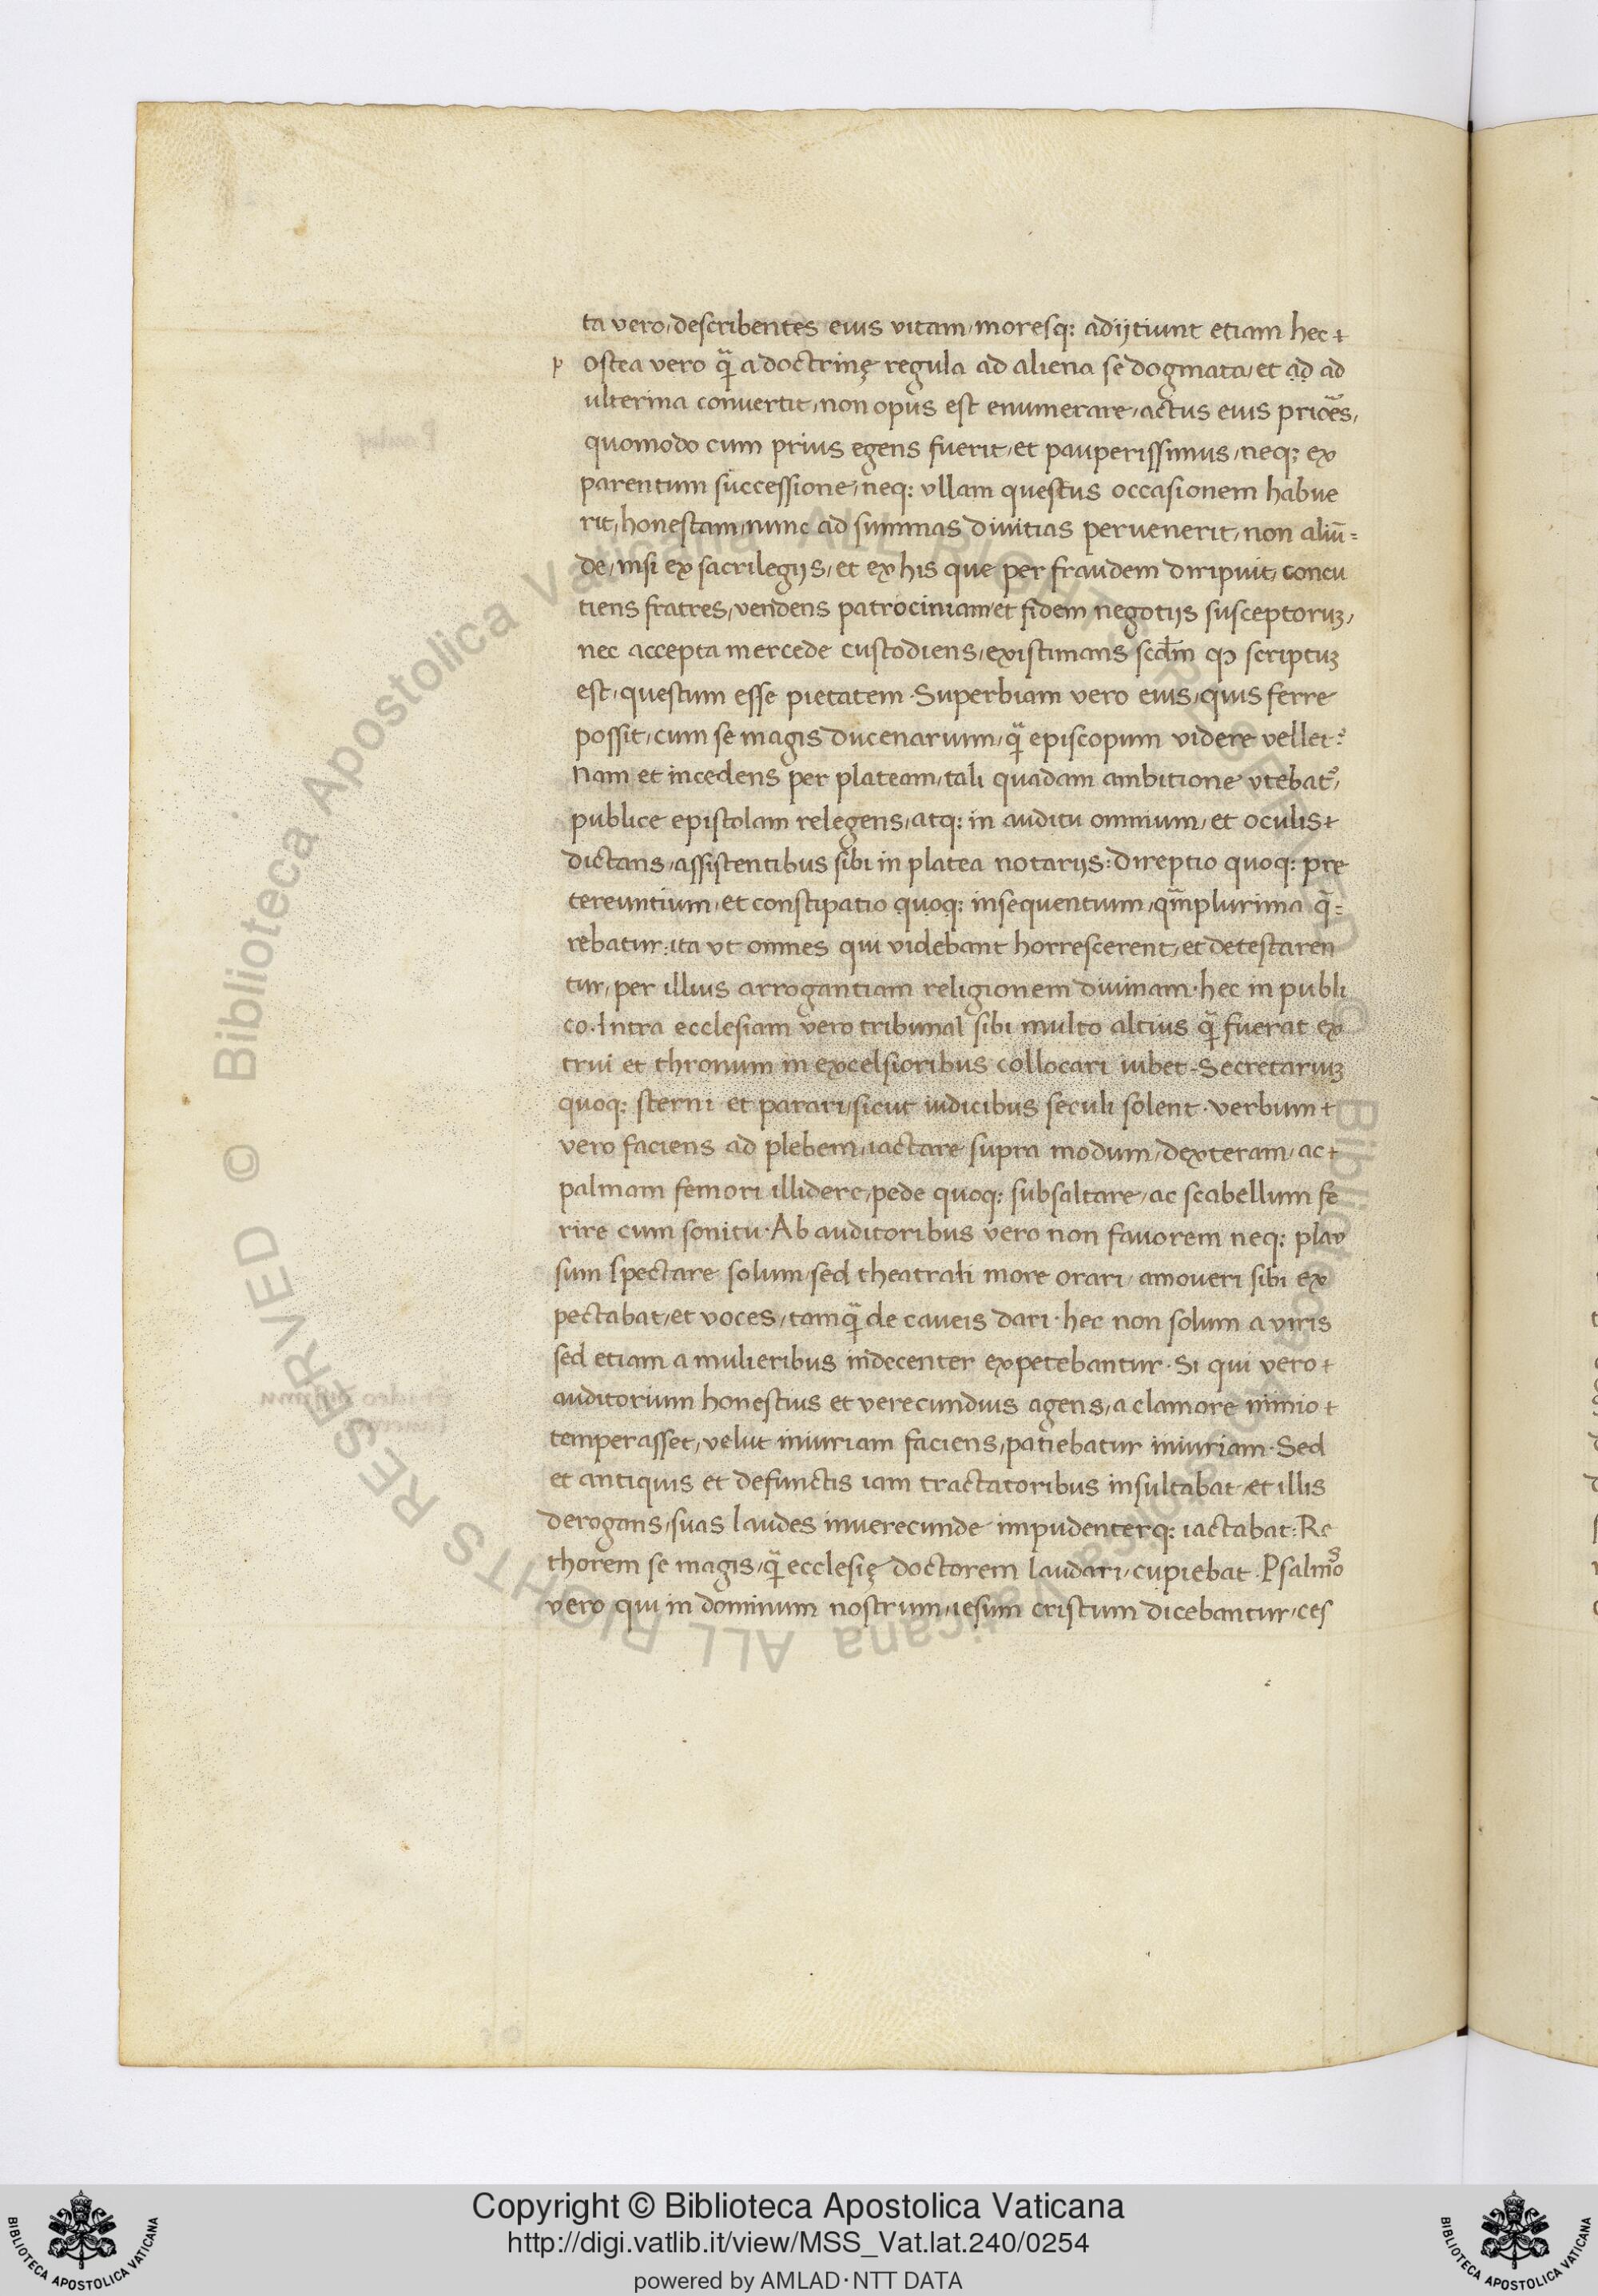 ta vero, describentes eius vitam, moresq; adijtiunt etiam hec
p ostea vero q̃ a doctrinę regula ad aliena se dogmata, et ad ad
ulterina convertit, non opus est enumerare, actus eius prices,
quomodo cum prius egens fuerit, et pauperissimus, neq; ex
parentum successione, neq; vllam questus occasionem habue
rit, honestam, nunc ad summas divitias pervenerit, non aliũ=
de, nisi ex sacrilegijs, et ex his que per fraudem diripuit, concu
tiens fratres, vendens patrociniam et fidem negotijs susceptoruꝫ,
nec accepta mercede custodiens, existimans scdm̃ qɔ scriptuꝫ
est, questum esse pietatem. Superbiam vero eius, quis ferre
possit, cum se magis ducenarium, q̃ episcopum videre vellet?
Nam et incedens per plateam, tali quadam ambitione vtebat̃,
publice epistolam relegens, atq; in auditu omnium, et oculis
dictans, assistentibus sibi in platea notarijs: direptio quoq; pre
tereuntium, et constipatio quoq; insequentium, qm̃plurima q̃=
rebatur: ita vt omnes qui videbant horrescerent, et detestaren
tur, per illius arrogantiam religionem divinam. hec in publi
co. Intra ecclesiam vero tribunal sibi multo altius q̃ fuerat ex
trui et thronum in excelsioribus collocari iubet. Secretariuꝫ
quoq; sterni et parari, sicut iudicibus seculi solent. verbum
vero faciens ad plebem, iactare supra modum, dexteram, ac
palmam femori illidere, pede quoq; subsaltare, ac scabellum fe
rire cum sonitu. Ab auditoribus vero non favorem neq; plav
sum spectare solum, sed theatrali more orari, amoveri sibi ex
pectabat, et voces, tamq̃ de caveis dari. hec non solum a viris
sed etiam a mulieribus indecenter expetebantur. Si qui vero
auditorium honestius et verecundius agens, a clamore nimio
temperasset, velut iniuriam faciens, patiebatur iniuriam. Sed
et antiquis et defunctis iam tractatoribus insultabat, et illis
derogans, suas laudes inverecunde impudenterq; iactabat: Re
thorem se magis, q̃ ecclesię doctorem laudari, cupiebat. Psalmos
vero qui in dominum nostrum, iesum cristum dicebantur, ces
© Biblioteca Apostolica Vaticana ALL RIGHTS RESERVED
© Biblioteca Apostolica Vaticana ALL RIGHTS RESERVED
Copyright © Biblioteca Apostolica Vaticana
http://digi.vatlib.it/view/MSS_Vat.lat.240/0254
powered by AMLAD·NTT DATA
BIBLIOTECA APOSTOLICA VATICANA
BIBLIOTECA APOSTOLICA VATICANA